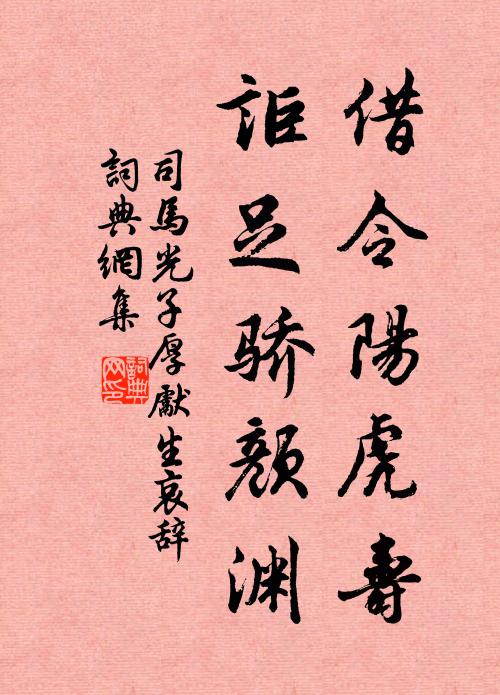 借令陽虎壽
詎足骄顔渊
司馬光子厚獻生哀辞
詞典網集
詞典网印